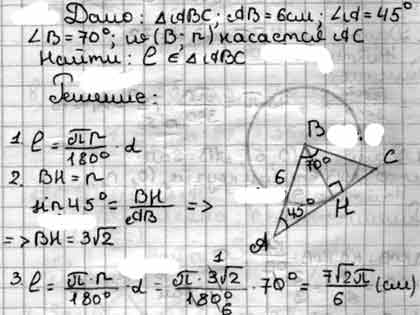 Дано: △ABC; AB=6см; ∠A=45°
∠B=70°; (B; r) касается AC
Найти: l ∈ △ABC
Решение:
1. l = πr/180° · α
2. BH = r
sin 45° = BH/AB =>
=> BH = 3√2
3. l = π·r/180° · α = π·3√2/180° · 70° = 7√2π/6 (см)
1
6
B
70°
6
C
45°
H
A